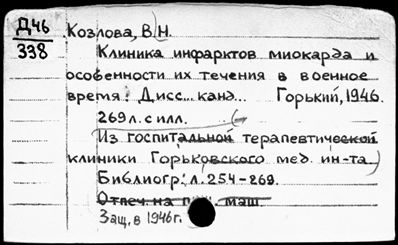 Д46
338
Козлова, В.Н.
Клиника инфарктов миокарда и
особенности их течения в военное
время: Дисс... канд... Горький, 1946.
269 л. с илл. (-
Из госпитальной терапевтической
клиники Горьковского мед. ин-та)
Библиогр: л. 254-269.
Отпеч. на пиш. маш
Защ. в 1946 г.